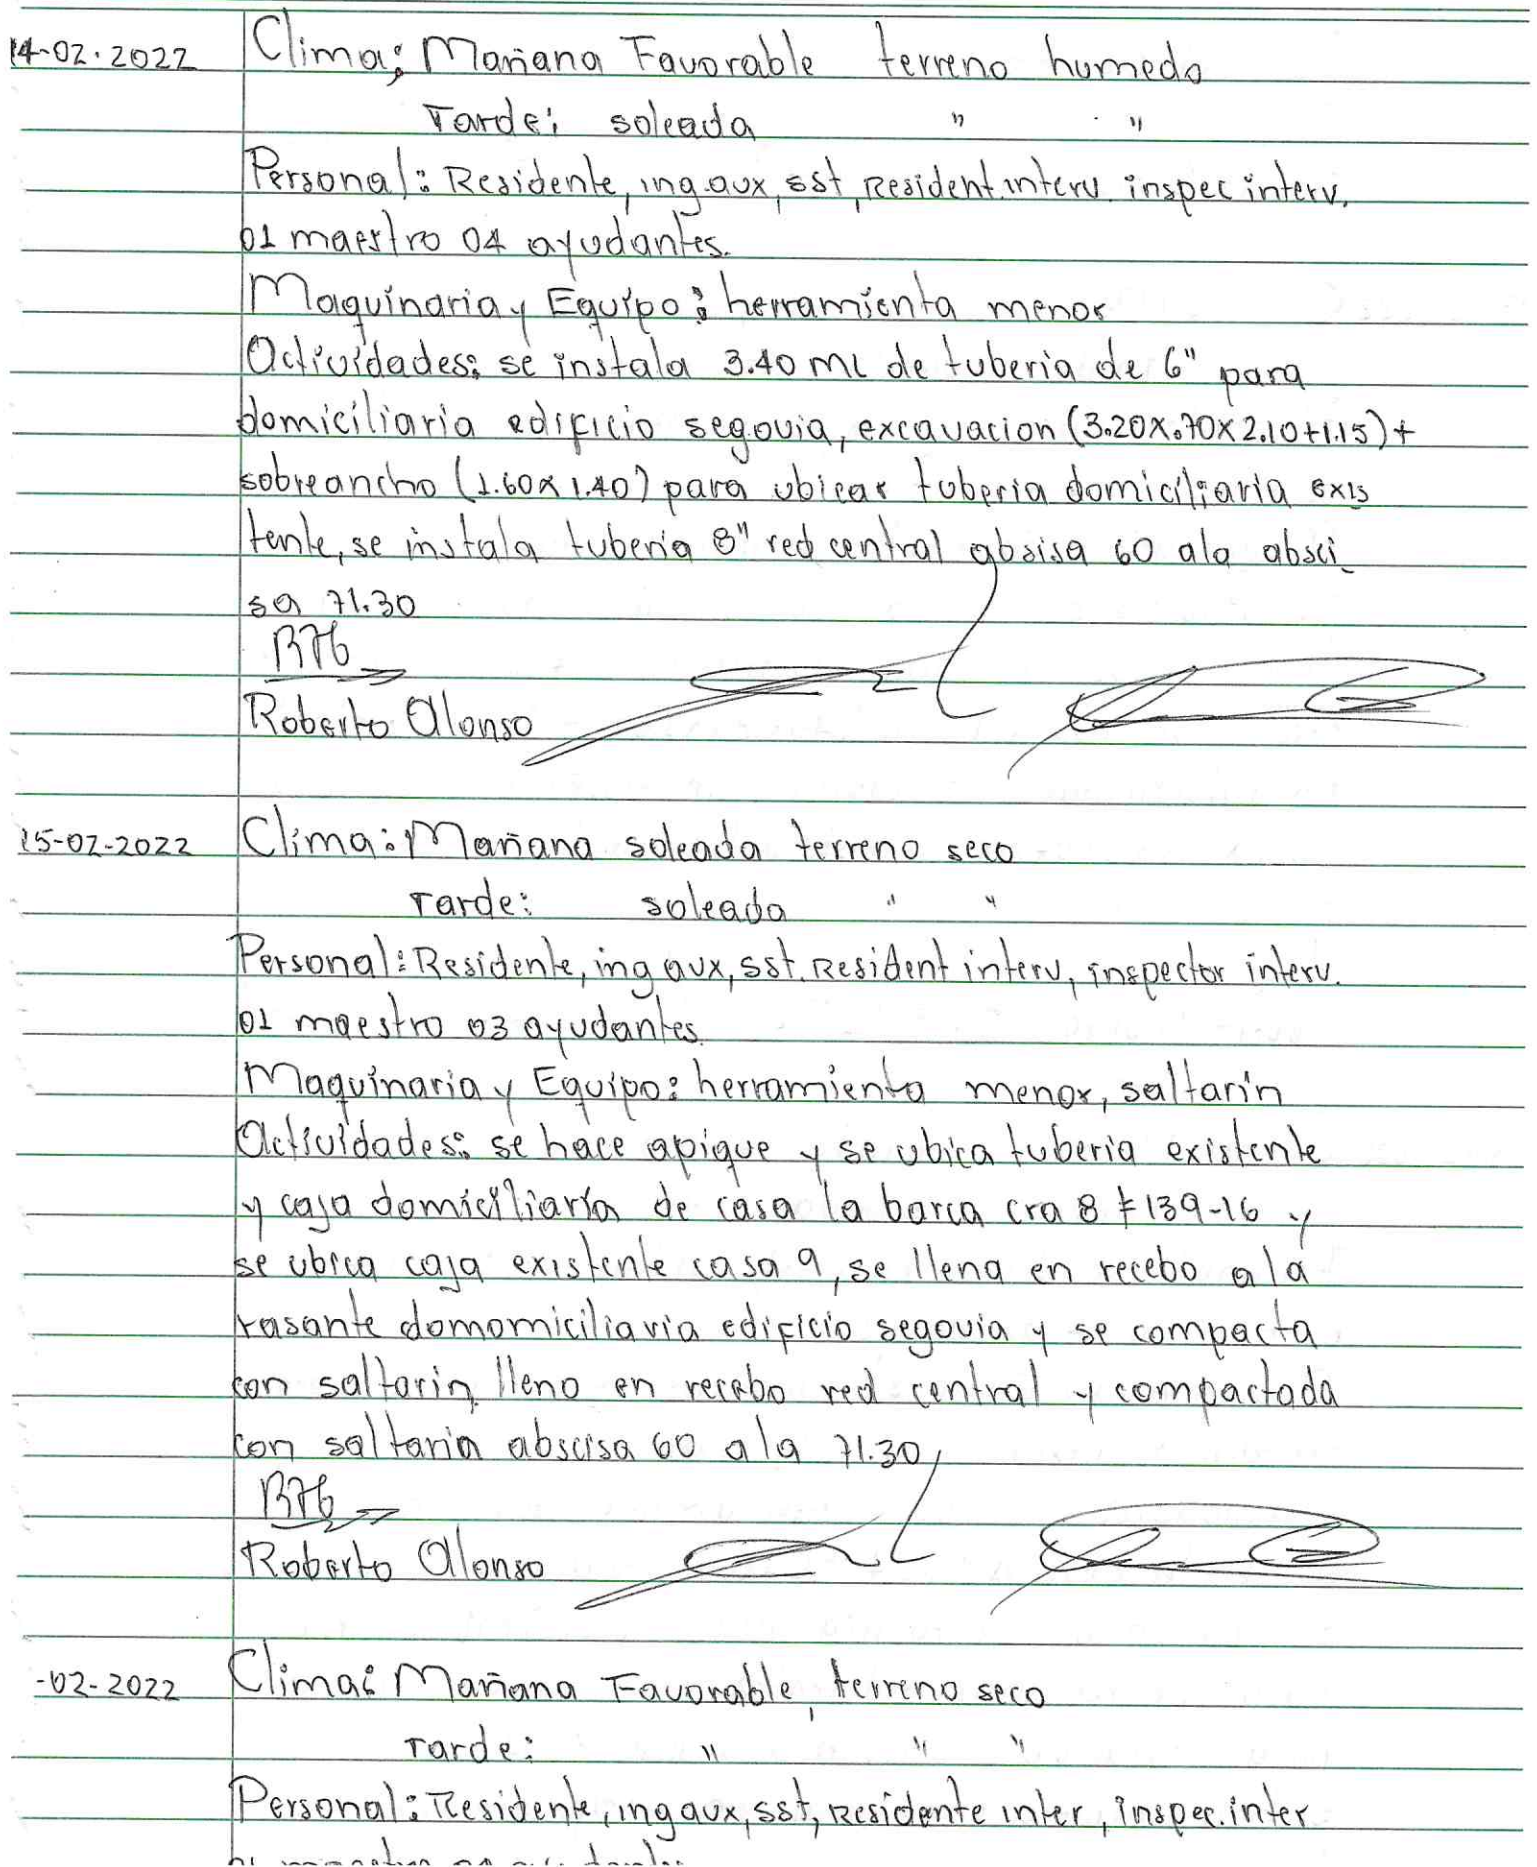 14-02-2022 Clima; Mañana Favorable terreno humedo
Tarde: soleada " "
Personal: Residente, ing.aux, sst, Resident.interv. inspec interv.
01 maestro 04 ayudantes.
Maquinaria y Equipo: herramienta menor
Actividades: se instala 3.40 ML de tuberia de 6" para
domiciliaria edificio segovia, excavacion (3.20x.70x2.10+1.15)+
sobreancho (1.60x1.40) para ubicar tuberia domiciliaria exis
tente, se instala tuberia 8" red central absisa 60 ala absci_
sa 71.30
Roberto Alonso
15-02-2022 Clima: Mañana soleada terreno seco
Tarde: soleada " "
Personal: Residente, ing aux, sst. Resident interv, inspector interv.
01 maestro 03 ayudantes.
Maquinaria y Equipo: herramienta menor, saltarin
Actividades: se hace apique y se ubica tuberia existente
y caja domiciliaria de casa la barca cra 8 # 139-16 y
se ubica caja existente casa 9, se llena en recebo a la
rasante domomiciliaria edificio segovia y se compacta
con saltarin, lleno en recebo red central y compactada
con saltarin abscisa 60 a la 71.30
Roberto Alonso
-02-2022 Clima: Mañana Favorable, terreno seco
Tarde: " " "
Personal: Residente, ing aux, sst, Residente inter, inspec.inter